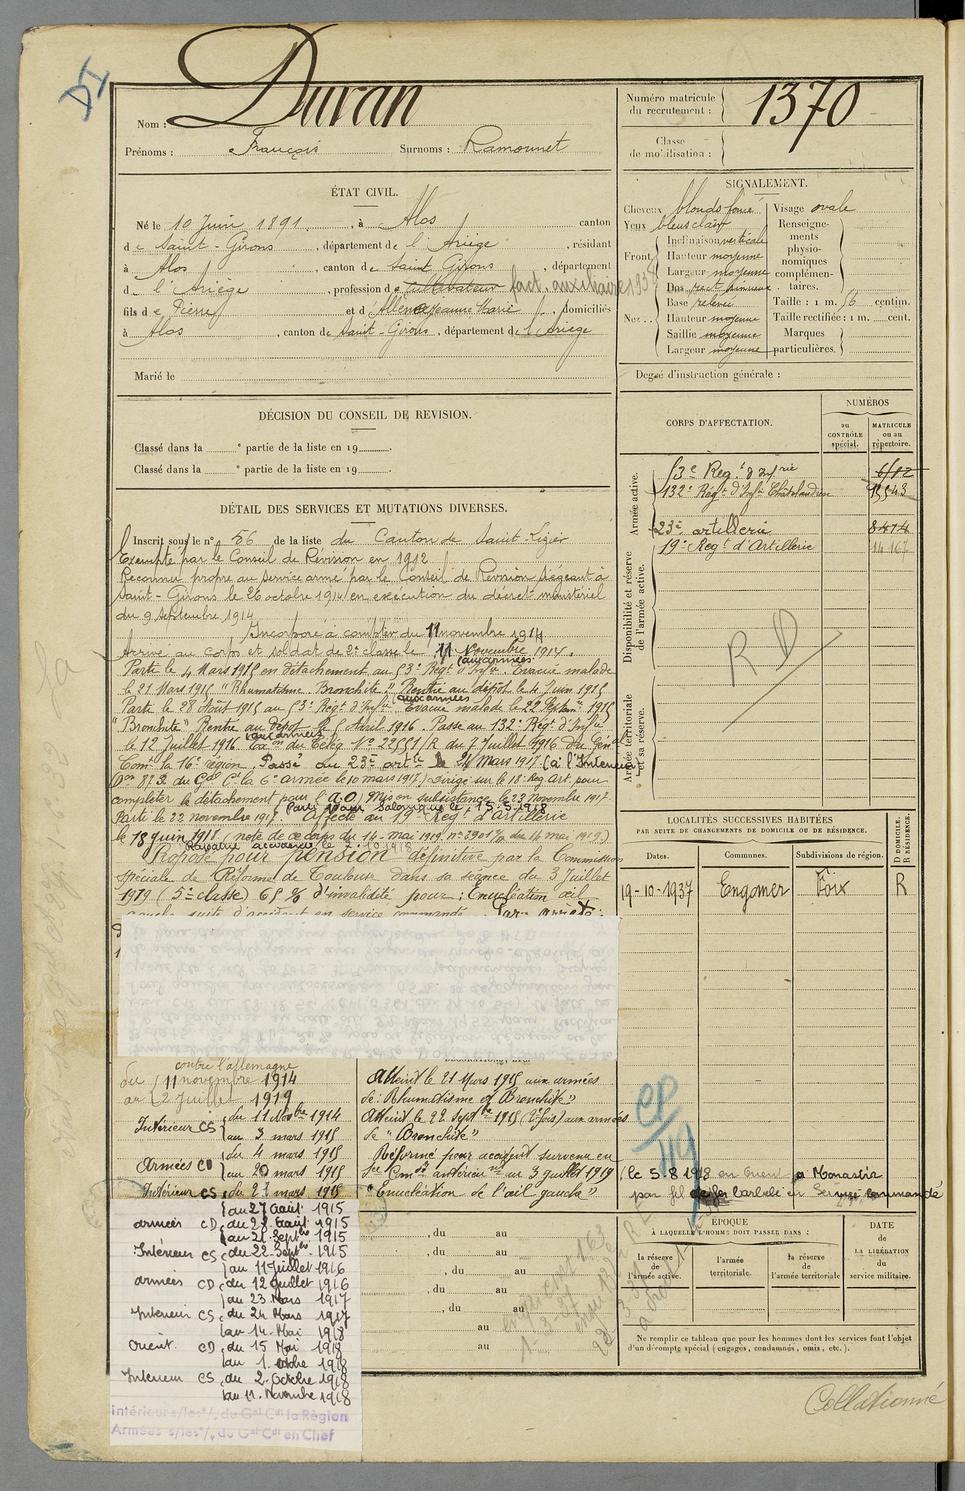 Nom : Duran
Prénoms : François Surnoms : Ramounet
Numéro matricule du recrutement : 1370
Classe de mobilisation :
ÉTAT CIVIL.
Né le 10 Juin 1891, à Alos canton
de Saint-Girons, département de l'Ariège, résidant
à Alos, canton de Saint Girons, département
de l'Ariège, profession de cultivateur fact. auxiliaire 1938
fils de Pierre et d Jeanne Marie, domiciliés
à Alos, canton de Saint-Girons, département de l'Ariège
Marié le
SIGNALEMENT.
Cheveux blonds foncé Visage ovale
Yeux bleus clairs Renseignements physionomiques complémentaires.
Front Inclinaison verticale
Hauteur moyenne
Largeur moyenne
Nez Dos rect.
Base relevée
Hauteur moyenne
Saillie moyenne
Largeur moyenne
Taille : 1 m. 56 centim.
Taille rectifiée : 1 m. cent.
Marques particulières.
Degré d'instruction générale :
DÉCISION DU CONSEIL DE REVISION.
Classé dans la e partie de la liste en 19 .
Classé dans la e partie de la liste en 19 .
CORPS D'AFFECTATION.
NUMÉROS
au CONTRÔLE spécial.
MATRICULE ou au répertoire.
Armée active.
53e Reg.t d'Inf.rie
132e Régt d'Infie Châtelaudren
23e artillerie 8474
19e Regt d'Artillerie 14167
Disponibilité et réserve de l'armée active.
Armée territoriale et sa réserve.
RD
DÉTAIL DES SERVICES ET MUTATIONS DIVERSES.
Inscrit sous le n° 56 de la liste du Canton de Saint-Lizier
Exempté par le Conseil de Révision en 1912
Reconnu propre au service armé par le Conseil de Revision siégeant à
Saint-Girons le 26 octobre 1914 en exécution du décret ministériel
du 9 septembre 1914
Incorporé à compter du 11 novembre 1914
Arrivé au corps et soldat de 2e classe le 11 Novembre 1914.
Parti le 4 Mars 1915 en détachement au 53e Régt d'Infie (aux armées) Evacué malade
le 21 Mars 1915 "Rhumatisme Bronchite" Rentré au dépôt le 4 Juin 1915
Parti le 28 Août 1915 au 53e Régt d'Infie (aux armées) Evacué malade le 22 Septbre 1915
"Bronchite" Rentré au dépôt le 5 Avril 1916. Passé au 132e Régt d'Infie
le 12 Juillet 1916 (aux armées) Exon du Télég. No 22551/R du 7 Juillet 1916 du Genal
Comt la 16e région. Passé au 23e artie le 24 Mars 1917 (à l'Interieur
Don 87 R du Gal Ct la 6e armée le 10 mars 1917) Dirigé sur le 18e Reg Art. pour
completer le détachement pour l'A.O) Mis en subsistance le 23 Novembre 1917
Parti le 22 novembre 1917. Parti pour Salonique le 15-5-1918 Affecté au 19e Regt d'Artillerie
le 18 juin 1918. (note de ce corps du 14-mai 1919 no 2901/D du 14 mai 1919.)
Rapatrié le 2-10-1918
Proposé pour pension définitive par la Commission
spéciale de Réforme de Toulouse dans sa séance du 3 Juillet
1919 (5e classe) 65 % d'invalidité pour : Enucléation œil
gauche suite d'accident en service commandé.
LOCALITÉS SUCCESSIVES HABITÉES
PAR SUITE DE CHANGEMENTS DE DOMICILE OU DE RÉSIDENCE.
Dates. Communes. Subdivisions de région. D DOMICILE. R RÉSIDENCE.
19-10-1937 Engomer Foix R
contre l'allemagne
du 11 novembre 1914
au 2 Juillet 1919
Intérieur CS du 11 Novbre 1914
au 3 mars 1915
Armées CD du 4 mars 1915
au 20 mars 1915
Intérieur CS du 21 mars 1915
au 27 août 1915
armées CD du 28 août 1915
au 21 Septbre 1915
Intérieur CS du 22 Septbre 1915
au 11 Juillet 1916
armées CD du 12 Juillet 1916
au 23 Mars 1917
Interieur CS du 24 Mars 1917
au 14 Mai 1918
Orient. CD du 15 Mai 1918
au 1 octobre 1918
Interieur CS du 2 Octobre 1918
au 11 Novembre 1918
Intérieur s/les°/. du Gal Cdt la Région
Armées s/les°/. du Gal Cdt en Chef
Atteint le 21 Mars 1915 aux armées
de "Rhumatisme et Bronchite"
Atteint le 22 Septbre 1915 (2e fois) aux armées
de "Bronchite"
Réformé pour accident survenu en
antérieurt au 3 juillet 1919 (le 5.8.1918 en Orient à Monastir
"Enucléation de l'œil gauche" par fil de fer barbelé en Service commandé
, du au
, du au
, du au
, du au
au
au
ÉPOQUE
À LAQUELLE L'HOMME DOIT PASSER DANS :
la réserve de l'armée active.
l'armée territoriale.
la réserve de l'armée territoriale
DATE de LA LIBÉRATION du service militaire.
Ne remplir ce tableau que pour les hommes dont les services font l'objet
d'un décompte spécial (engagés, condamnés, omis, etc.).
Collationné